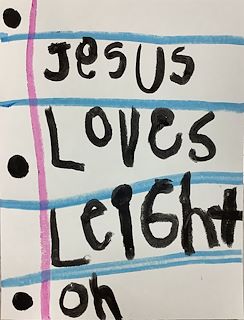 Jesus
Loves
LeiGht
on